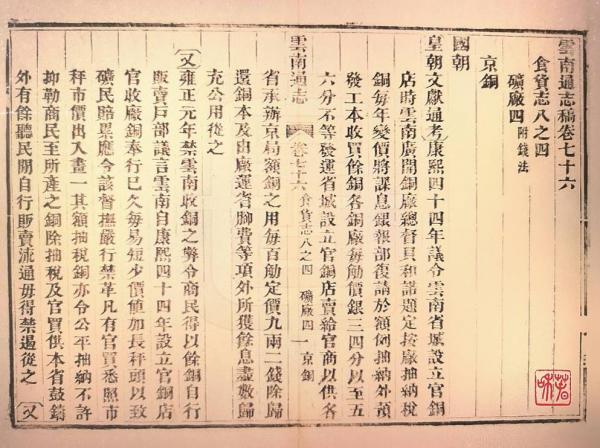 雲南通志稿卷七十六
食貨志八之四
礦廠四 附錢法
京銅
國朝
皇朝文獻通考康熙四十四年議令雲南省城設立官銅
店時雲南廣開銅廠總督貝和諾題定按廠抽納稅
銅每年變價將課息銀報部復請於額例抽納外預
發工本收買餘銅各銅廠每觔價銀三四分以至五
六分不等發運省城設立官銅店賣給官商以供各
雲南通志 卷七十六 食貨志八之四 礦廠四 一 京銅
省承辦京局額銅之用每百觔定價九兩二錢除歸
還銅本及由廠運省腳費等項外所獲餘息盡數歸
充公用從之
又雍正元年禁雲南收銅之弊令商民得以餘銅自行
販賣戶部議言雲南自康熙四十四年設立官銅店
官收廠銅奉行已久每易短少價値加長秤頭以致
礦民賠累應令該督撫嚴行禁革凡有官買悉照市
秤市價出入畫一其額抽稅銅亦令公平抽納不許
抑勒商民至所產之銅除抽稅及官買供本省鼓鑄
外有餘聽民間自行販賣流通毋得禁遏從之 又